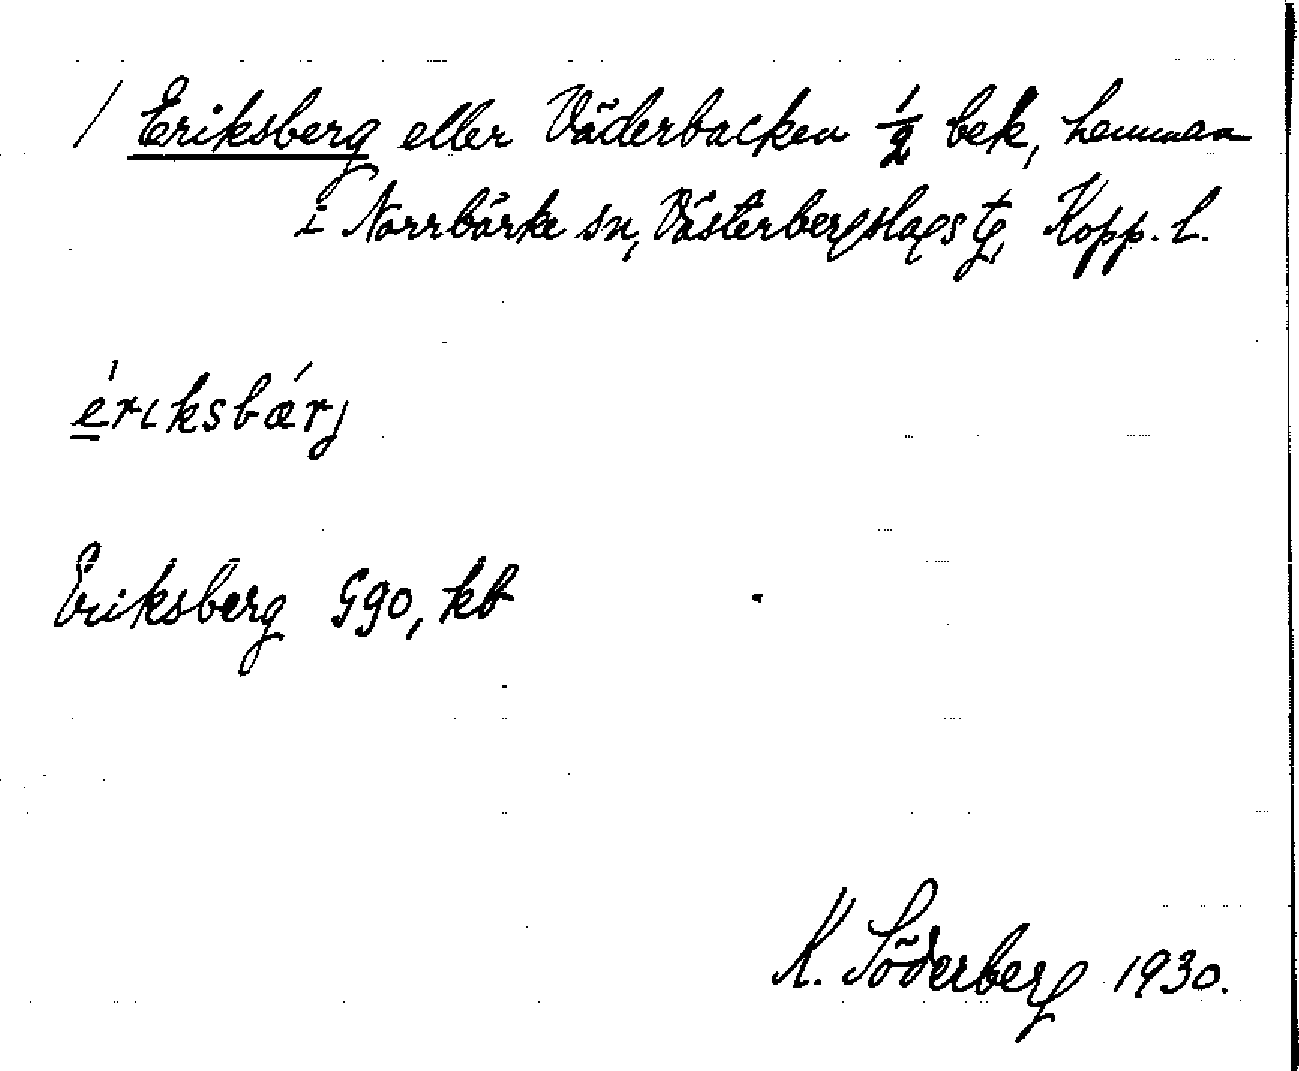 / Eriksberg eller Väderbacken 1/2 bek, hemman
i Norrbärke sn, Västerbergslags tg, Kopp. l.
ériksbárj
Eriksberg G90, kb
K. Söderberg 1930.